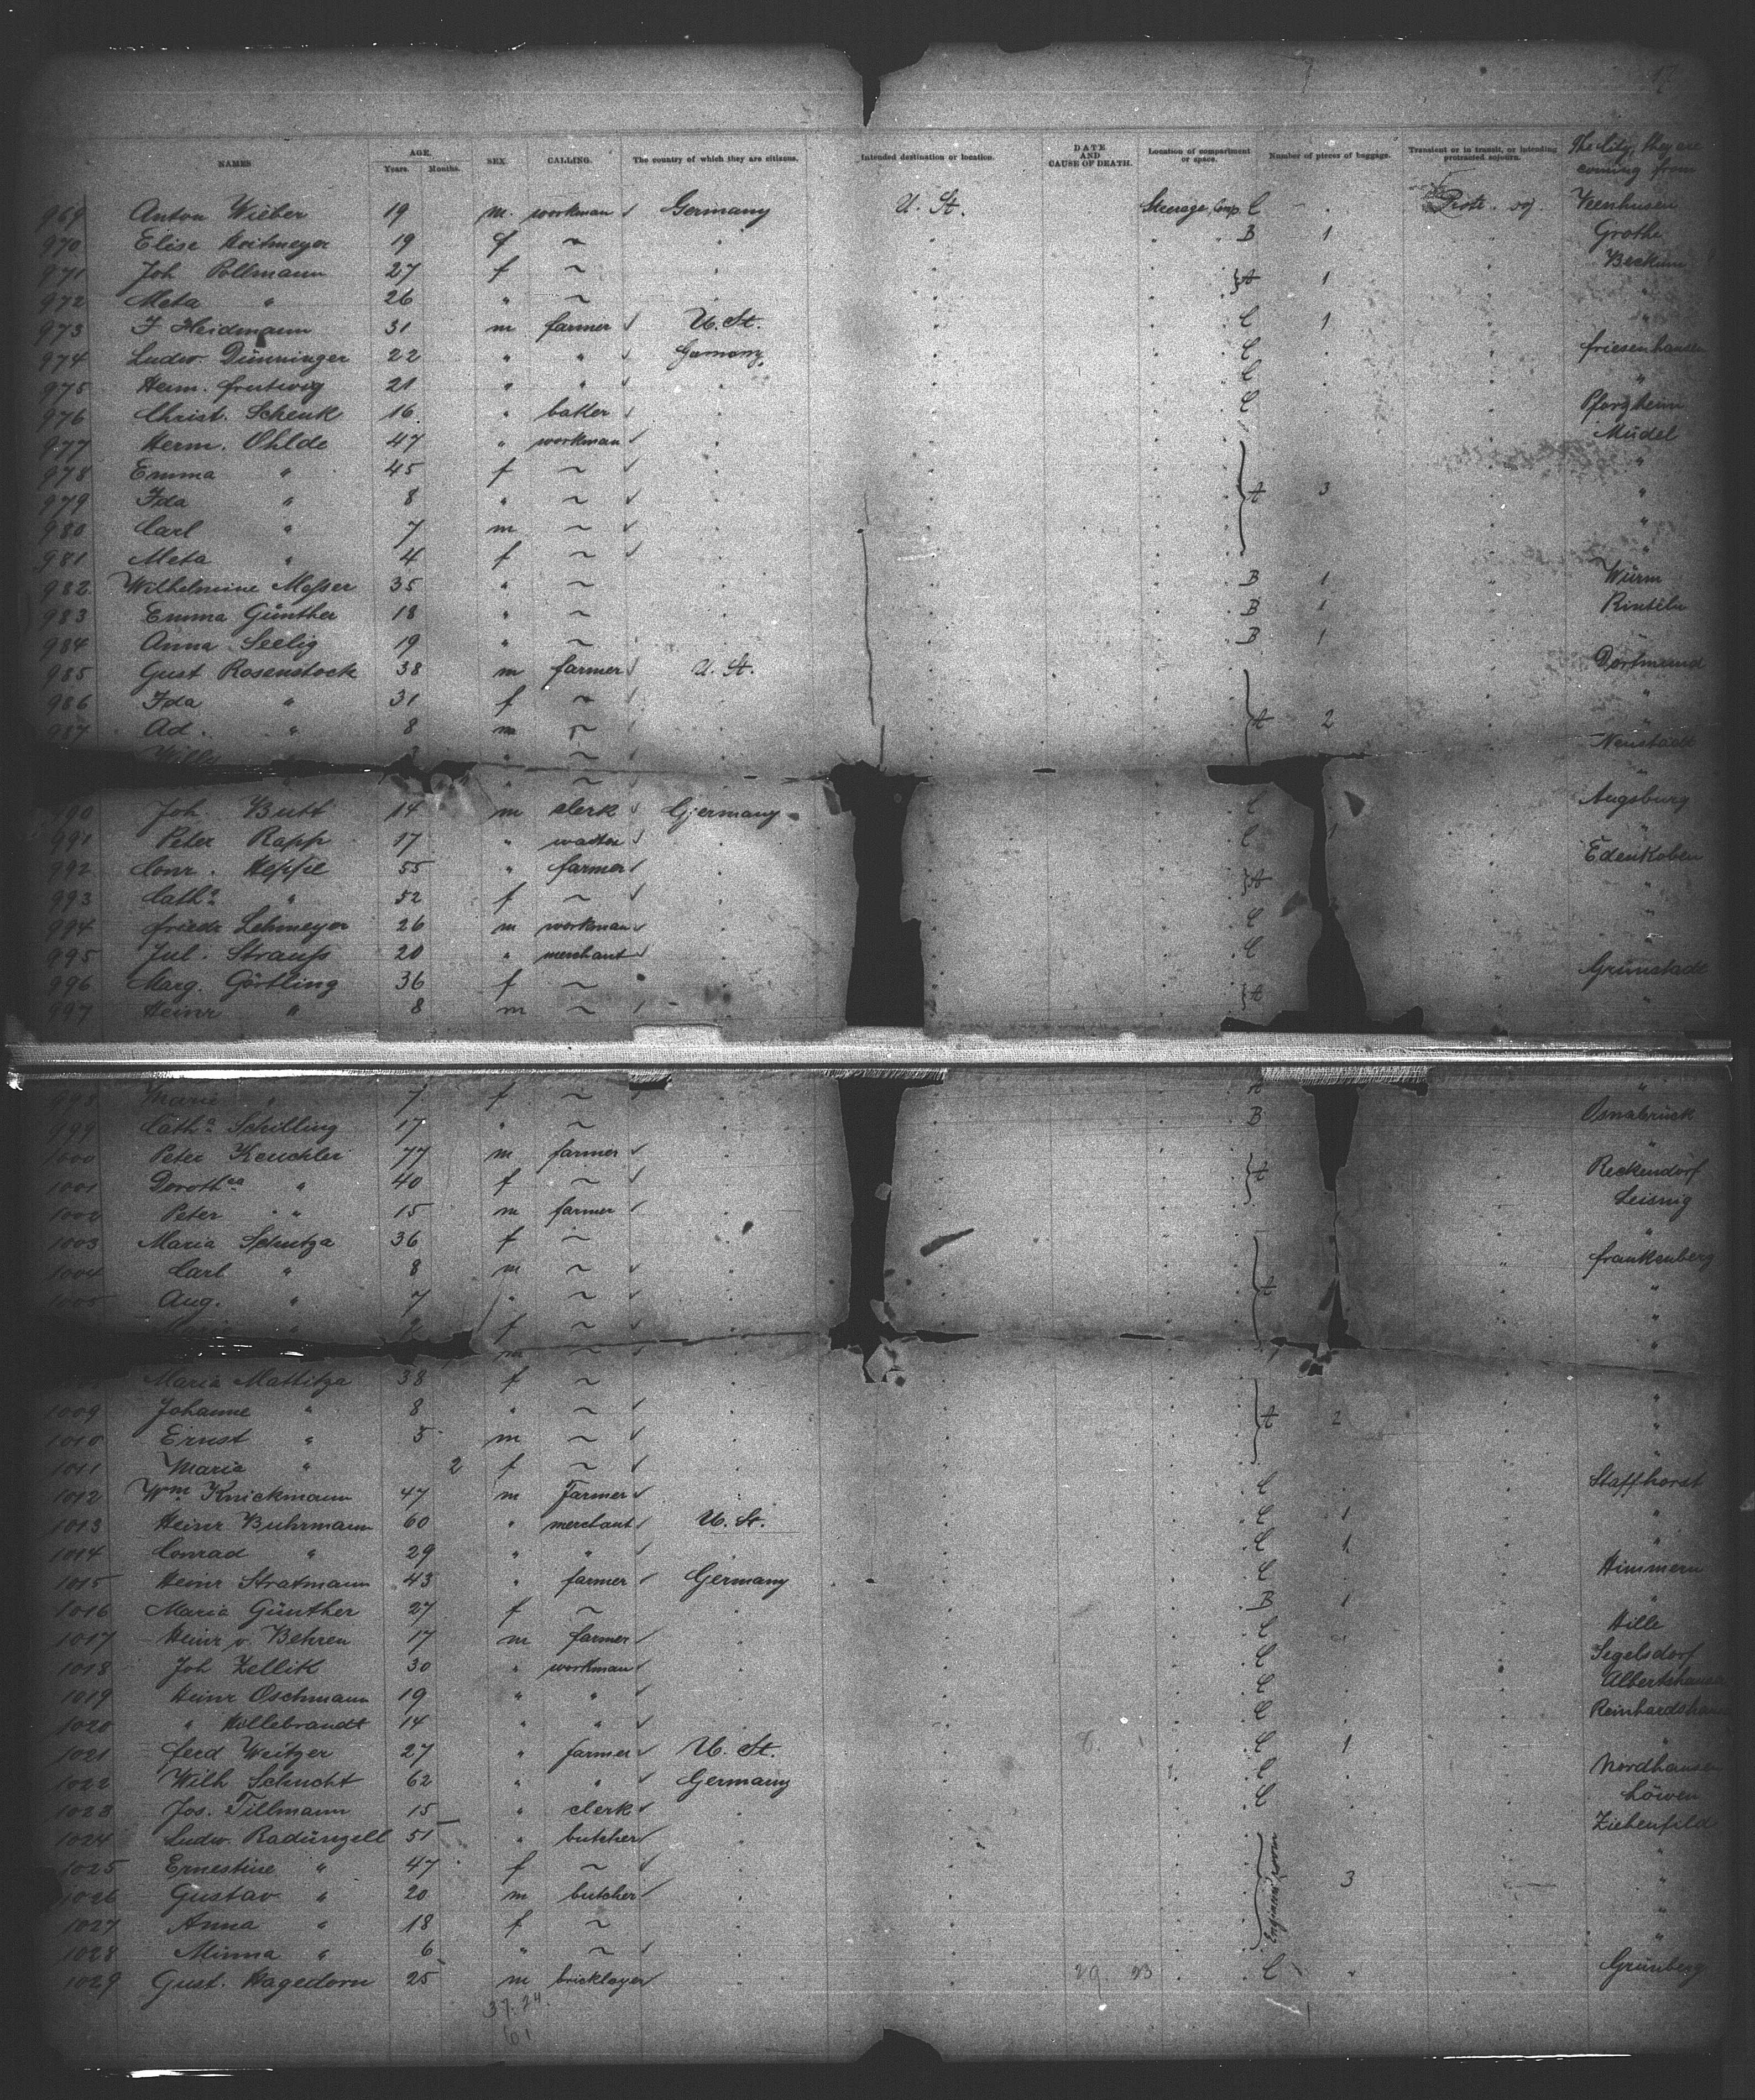 17
NAMES AGE. Years. Months. SEX. CALLING. The country of which they are citizens. Intended destination or location. DATE AND CAUSE OF DEATH. Location of compartment or space. Number of pieces of baggage. Transient or in transit, or intending protracted sojourn. The City, they are coming from
969 Anton Wieber 19 m. workman ✓ Germany U. St. Steerage, Comp C - Prote. soj. Veenhusen
970 Elise Hoitmeyer 19 f ~ " B 1 Grothe
971 Joh Pollmann 27 f ~ } A 1 Beckum
972 Meta " 26 " ~ "
973 F Heidmann 31 m farmer ✓ U. St. C 1 "
974 Ludw. Dünninger 22 " " ✓ Germany C friesenhausen
975 Herm. frutwig 21 " " ✓ C "
976 Christ. Schenk 16 " baker ✓ C Pforzheim
977 Herm. Ohlde 47 " workman ✓ Müdel
978 Emma " 45 f ~ ✓ "
979 Ida " 8 " ~ ✓ } A 3 "
980 Carl " 7 m ~ ✓ "
981 Meta " 4 f ~ ✓ "
982. Wilhelmine Messer 35 " ~ B 1 Würm
983 Emma Günther 18 " ~ B 1 Rinteln
984 Anna Seelig 19 " ~ B 1
985 Gust Rosenstock 38 m farmer ✓ U. St. Dortmund
986 Ida " 31 f ~ ✓ "
987 Ad. " 8 m ~ } A 2 "
Willy 3 " ~ ✓ Neustadt
" ~ "
990 Joh Butt 14 m clerk ✓ Germany C Augsburg
991 Peter Rapp 17 " waiter ✓ C 1 "
992 Conr. Heppe 55 " farmer ✓ Edenkoben
993 Catha " 52 f ~ ✓ } A "
994 friedr Lehmeyer 26 m workman ✓ C "
995 Jul. Strauss 20 " merchant ✓ C "
996 Marg. Görtling 36 f ~ Grünstadt
997 Heinr " 8 m ~ ✓ } A "
998 Marie " 7 f ~ ✓ A "
999 Catha Schilling 17 " ~ B Osnabrück
1000 Peter Keuchler 77 m farmer ✓ "
1001 Dorothea " 40 f ~ ✓ } A Reckendorf
1002 Peter " 15 m farmer ✓ Leisnig
1003 Maria Schutza 36 f ~ "
1004 Carl " 8 m ~ ✓ frankenberg
1005 Aug. " 7 " ~ ✓ } A "
" 2 f ~ ✓ "
m ~ ✓ "
Maria Mattitza 38 f ~
1009 Johanne " 8 " ~ ✓ } A 2 "
1010 Ernst " 5 m ~ ✓ "
1011 Maria " 2 f ~ ✓ "
1012 Wm Knickmann 47 m Farmer ✓ C Staffhorst
1013 Heinr Buhrmann 60 " merchant ✓ U. St. C 1 "
1014 Conrad " 29 " " ✓ C 1 "
1015 Heinr Stratmann 43 " farmer ✓ Germany C Himmern
1016 Maria Günther 27 f ~ B 1 "
1017 Heinr v. Behren 17 m farmer ✓ C Hille
1018 Joh Zellik 30 " workman ✓ C Segelsdorf
1019 Heinr Oschmann 19 " " ✓ C Albertshausen
1020 " Hillebrandt 14 " " ✓ C Reinhardshau
1021 ferd Weitzer 27 " farmer ✓ U. St. 8. C 1 "
1022 Wilh Schucht 62 " " ✓ Germany C Nordhausen
1023 Jos. Tillmann 15 " clerk ✓ C Löwen
1024 Ludw. Radünzell 51 " butcher ✓ Ziebenfeld
1025 Ernestine " 47 f ~ ✓ "
1026 Gustav " 20 m butcher ✓ } 3 "
1027 Anna " 18 f ~ "
1028 Minna " 6 " ~ ✓ "
1029 Gust. Hagedorn 25 m bricklayer ✓ 29 23 C Grünberg
37.24.
61